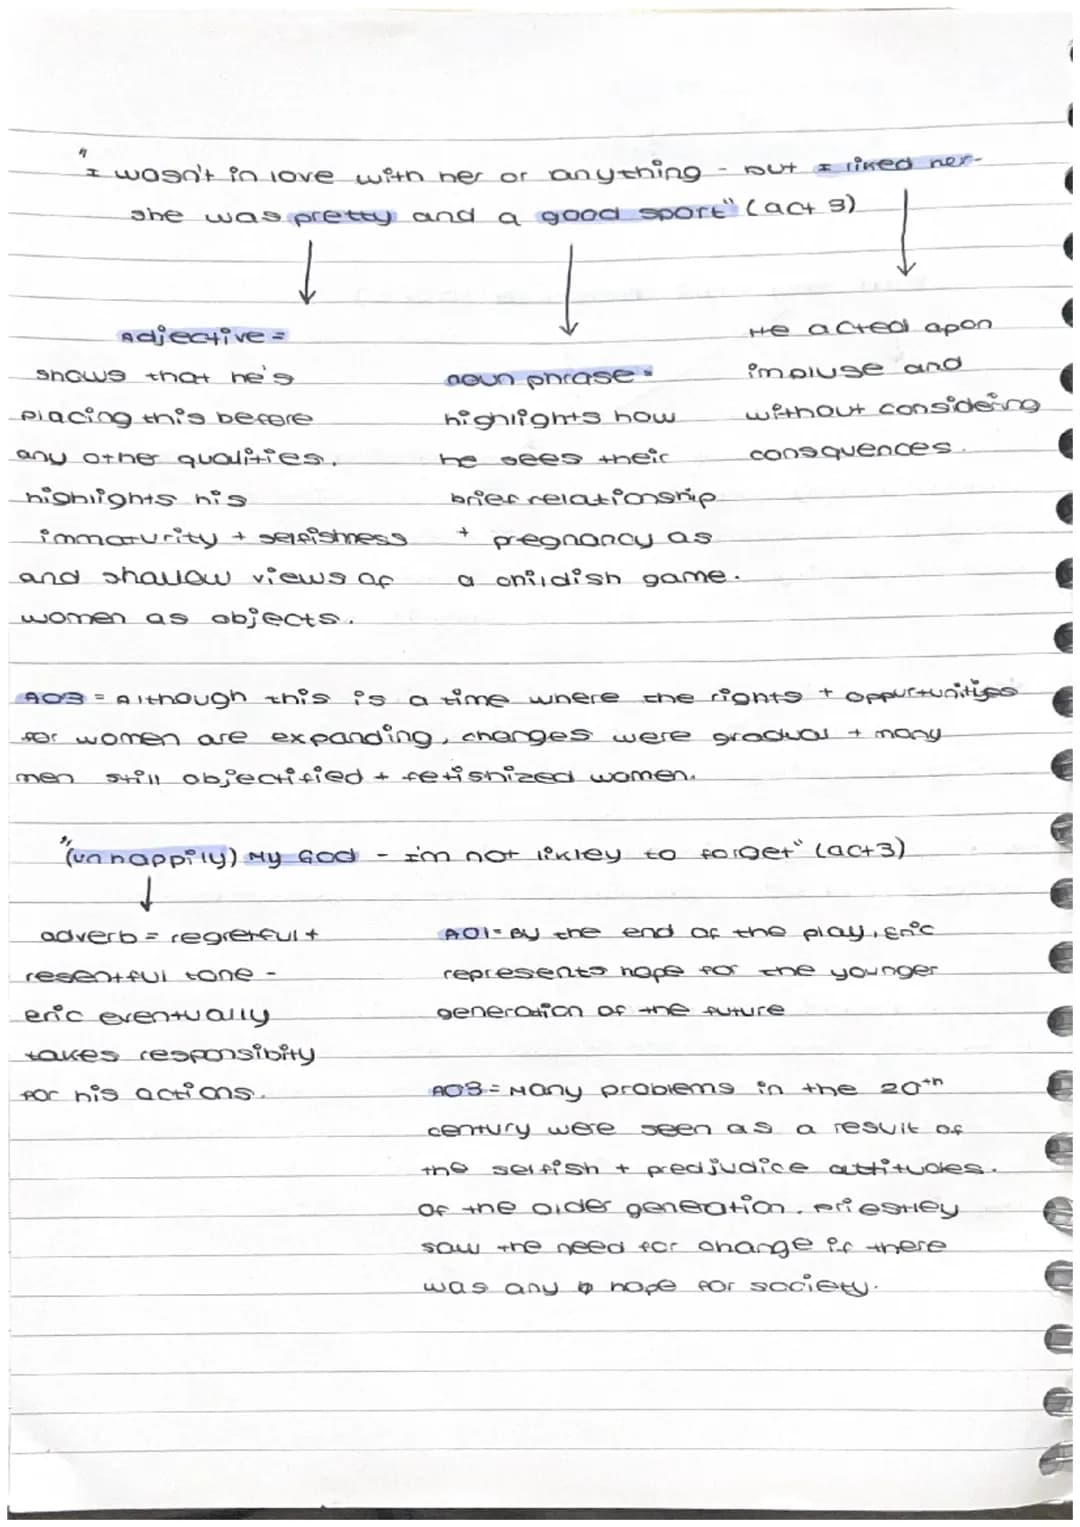 "I wasn't in love with her or anything - but I liked her-
she was pretty and a good sport" (act 3)
Adjective =
shows that he's
placing this before
any other qualities.
highlights his
immaturity + selfishness
and shallow views of
women as objects.
noun phrase =
highlights how
he sees their
brief relationship
+ pregnancy as
a childish game.
He acted apon
impluse and
without considering
consquences.
AO3 = Although this is a time where the rights + oppurtunities
for women are expanding, changes were gradual + many
men still objectified + fetishized women.
"(unhappily) My God - I'm not likley to forget" (act 3)
adverb = regretful +
resentful tone -
eric eventually
takes responsibity
for his actions.
AO1 = By the end of the play, Eric
represents hope for the younger
generation of the future
AO3 = Many problems in the 20th
century were seen as a result of
the selfish + predjudice attitudes.
of the older generation. Priestley
saw the need for change if there
was any hope for society.